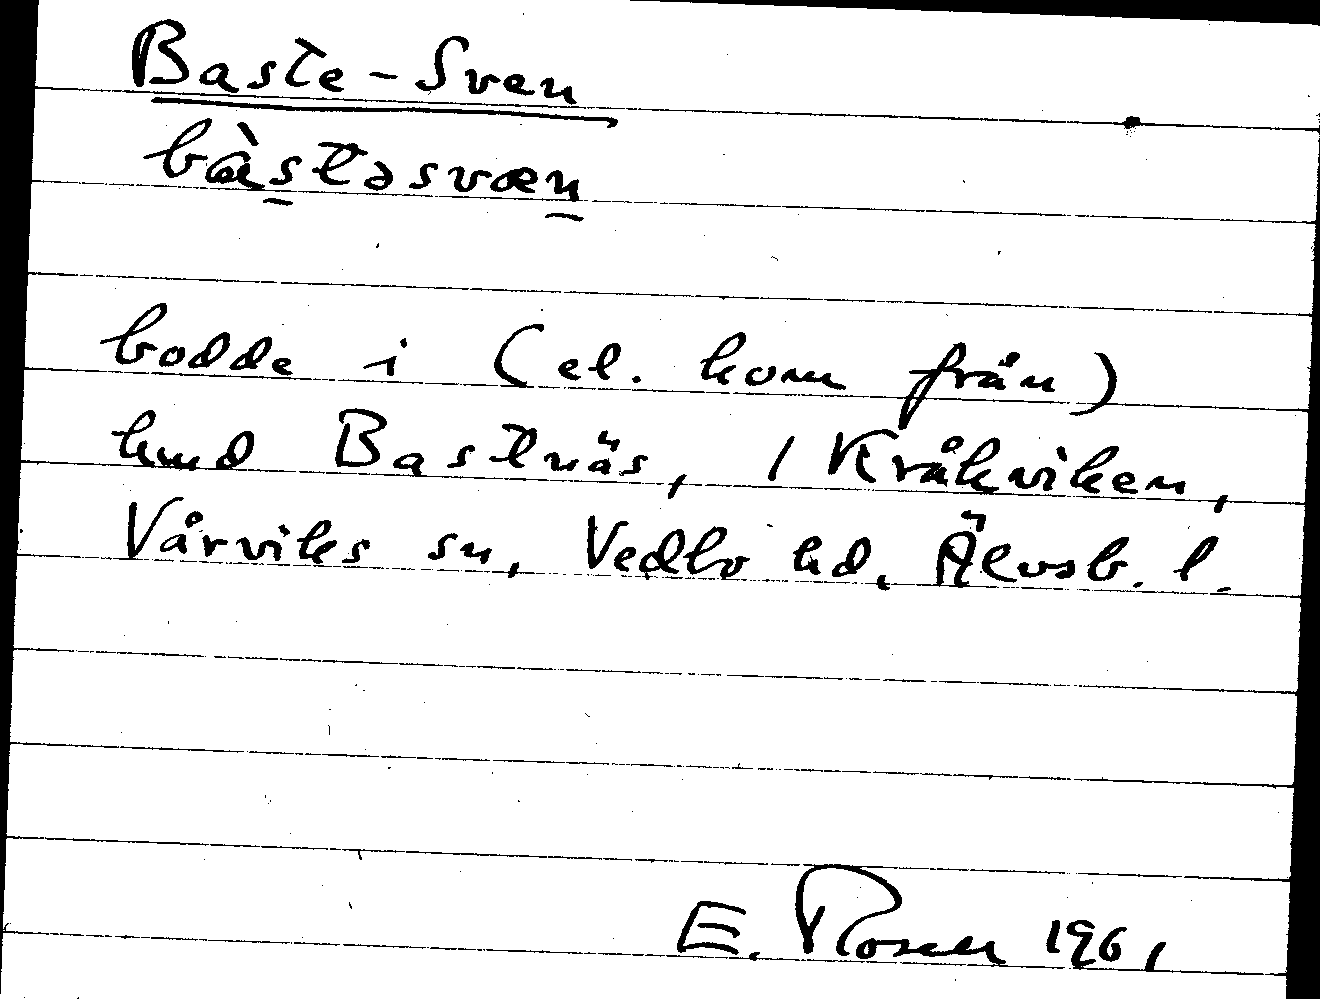 Baste-Sven
bàstəsvæn
bodde i (el. kom från)
hmd Bastnäs, / Kråkviken,
Vårviks sn, Vedbo hd, Älvsb. l.
E. Rosell 1961